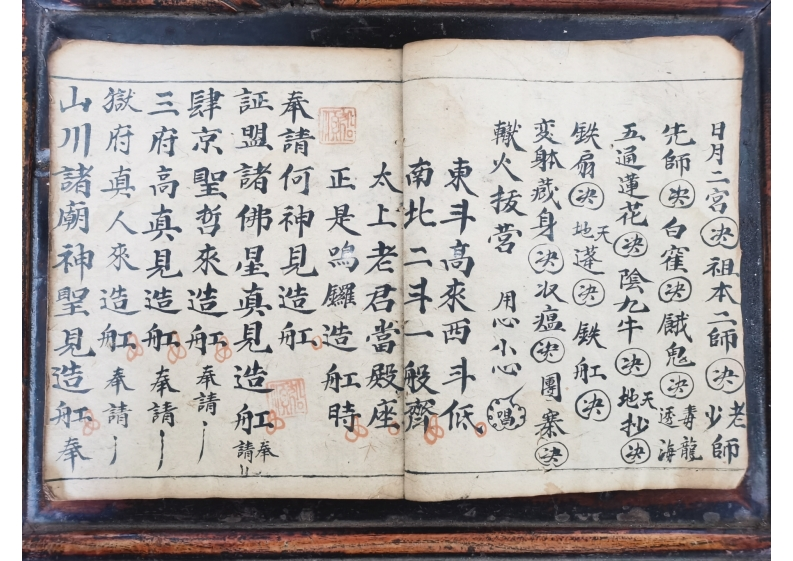 日月二宮決祖本二師決老少師
先師決白霍決餓鬼決毒龍透海
五通蓮花決陰九牛決天地抄決
铁扇決天地蓬決铁舡決
変躰藏身決收瘟決團寨決
轍火拔营 用心小心 唱
東斗高來西斗低
南北二斗一般齊
太上老君當殿座
正是鳴鑼造舡時
奉請何神見造舡
証盟諸佛星真見造舡奉請
肆京聖哲來造舡奉請
三府高真見造舡奉請
獄府真人來造舡奉請
山川諸廟神聖見造舡奉